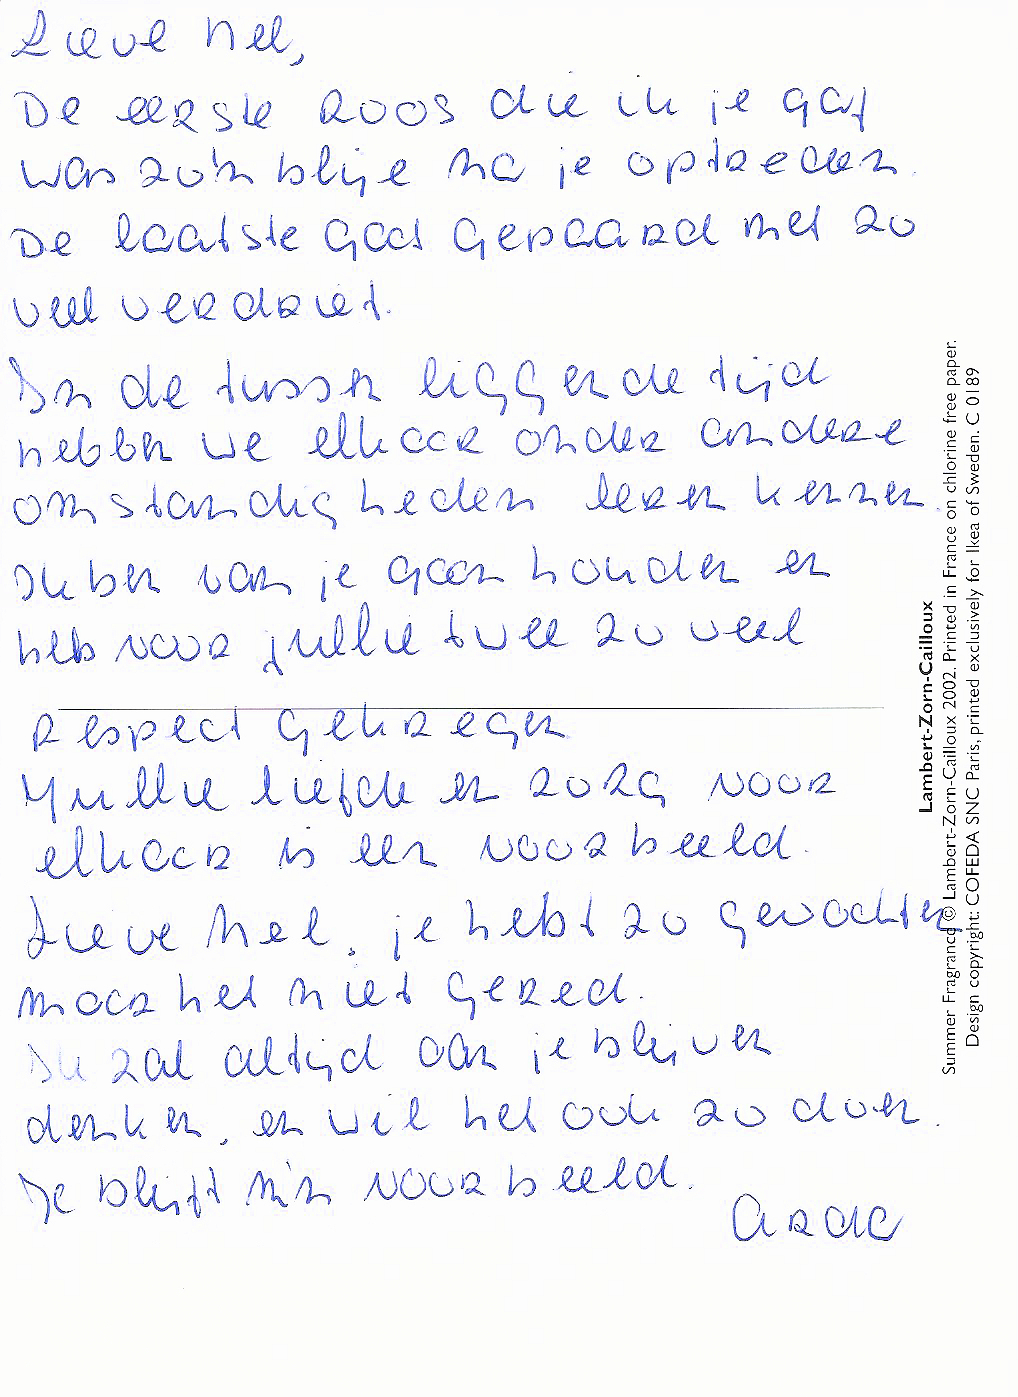 Lieve Nel,
De eerste roos die ik je gaf
was zo'n blije na je optreden.
De laatste gaat gepaard met zo
veel verdriet.
In de tussen liggende tijd
hebben we elkaar onder andere
omstandigheden leren kennen.
Ik ben van je gaan houden en
heb voor jullie twee zo veel
respect gekregen
Jullie liefde en zorg voor
elkaar is een voorbeeld.
Lieve Nel, je hebt zo gevochten
maar het niet gered.
Ik zal altijd aan je blijven
denken, en wil het ook zo doen.
Je blijft m'n voorbeeld.
Lambert-Zorn-Cailloux
Summer Fragrance © Lambert-Zorn-Cailloux 2002. Printed in France on chlorine free paper.
Design copyright: COFEDA SNC Paris, printed exclusively for Ikea of Sweden. C 0189